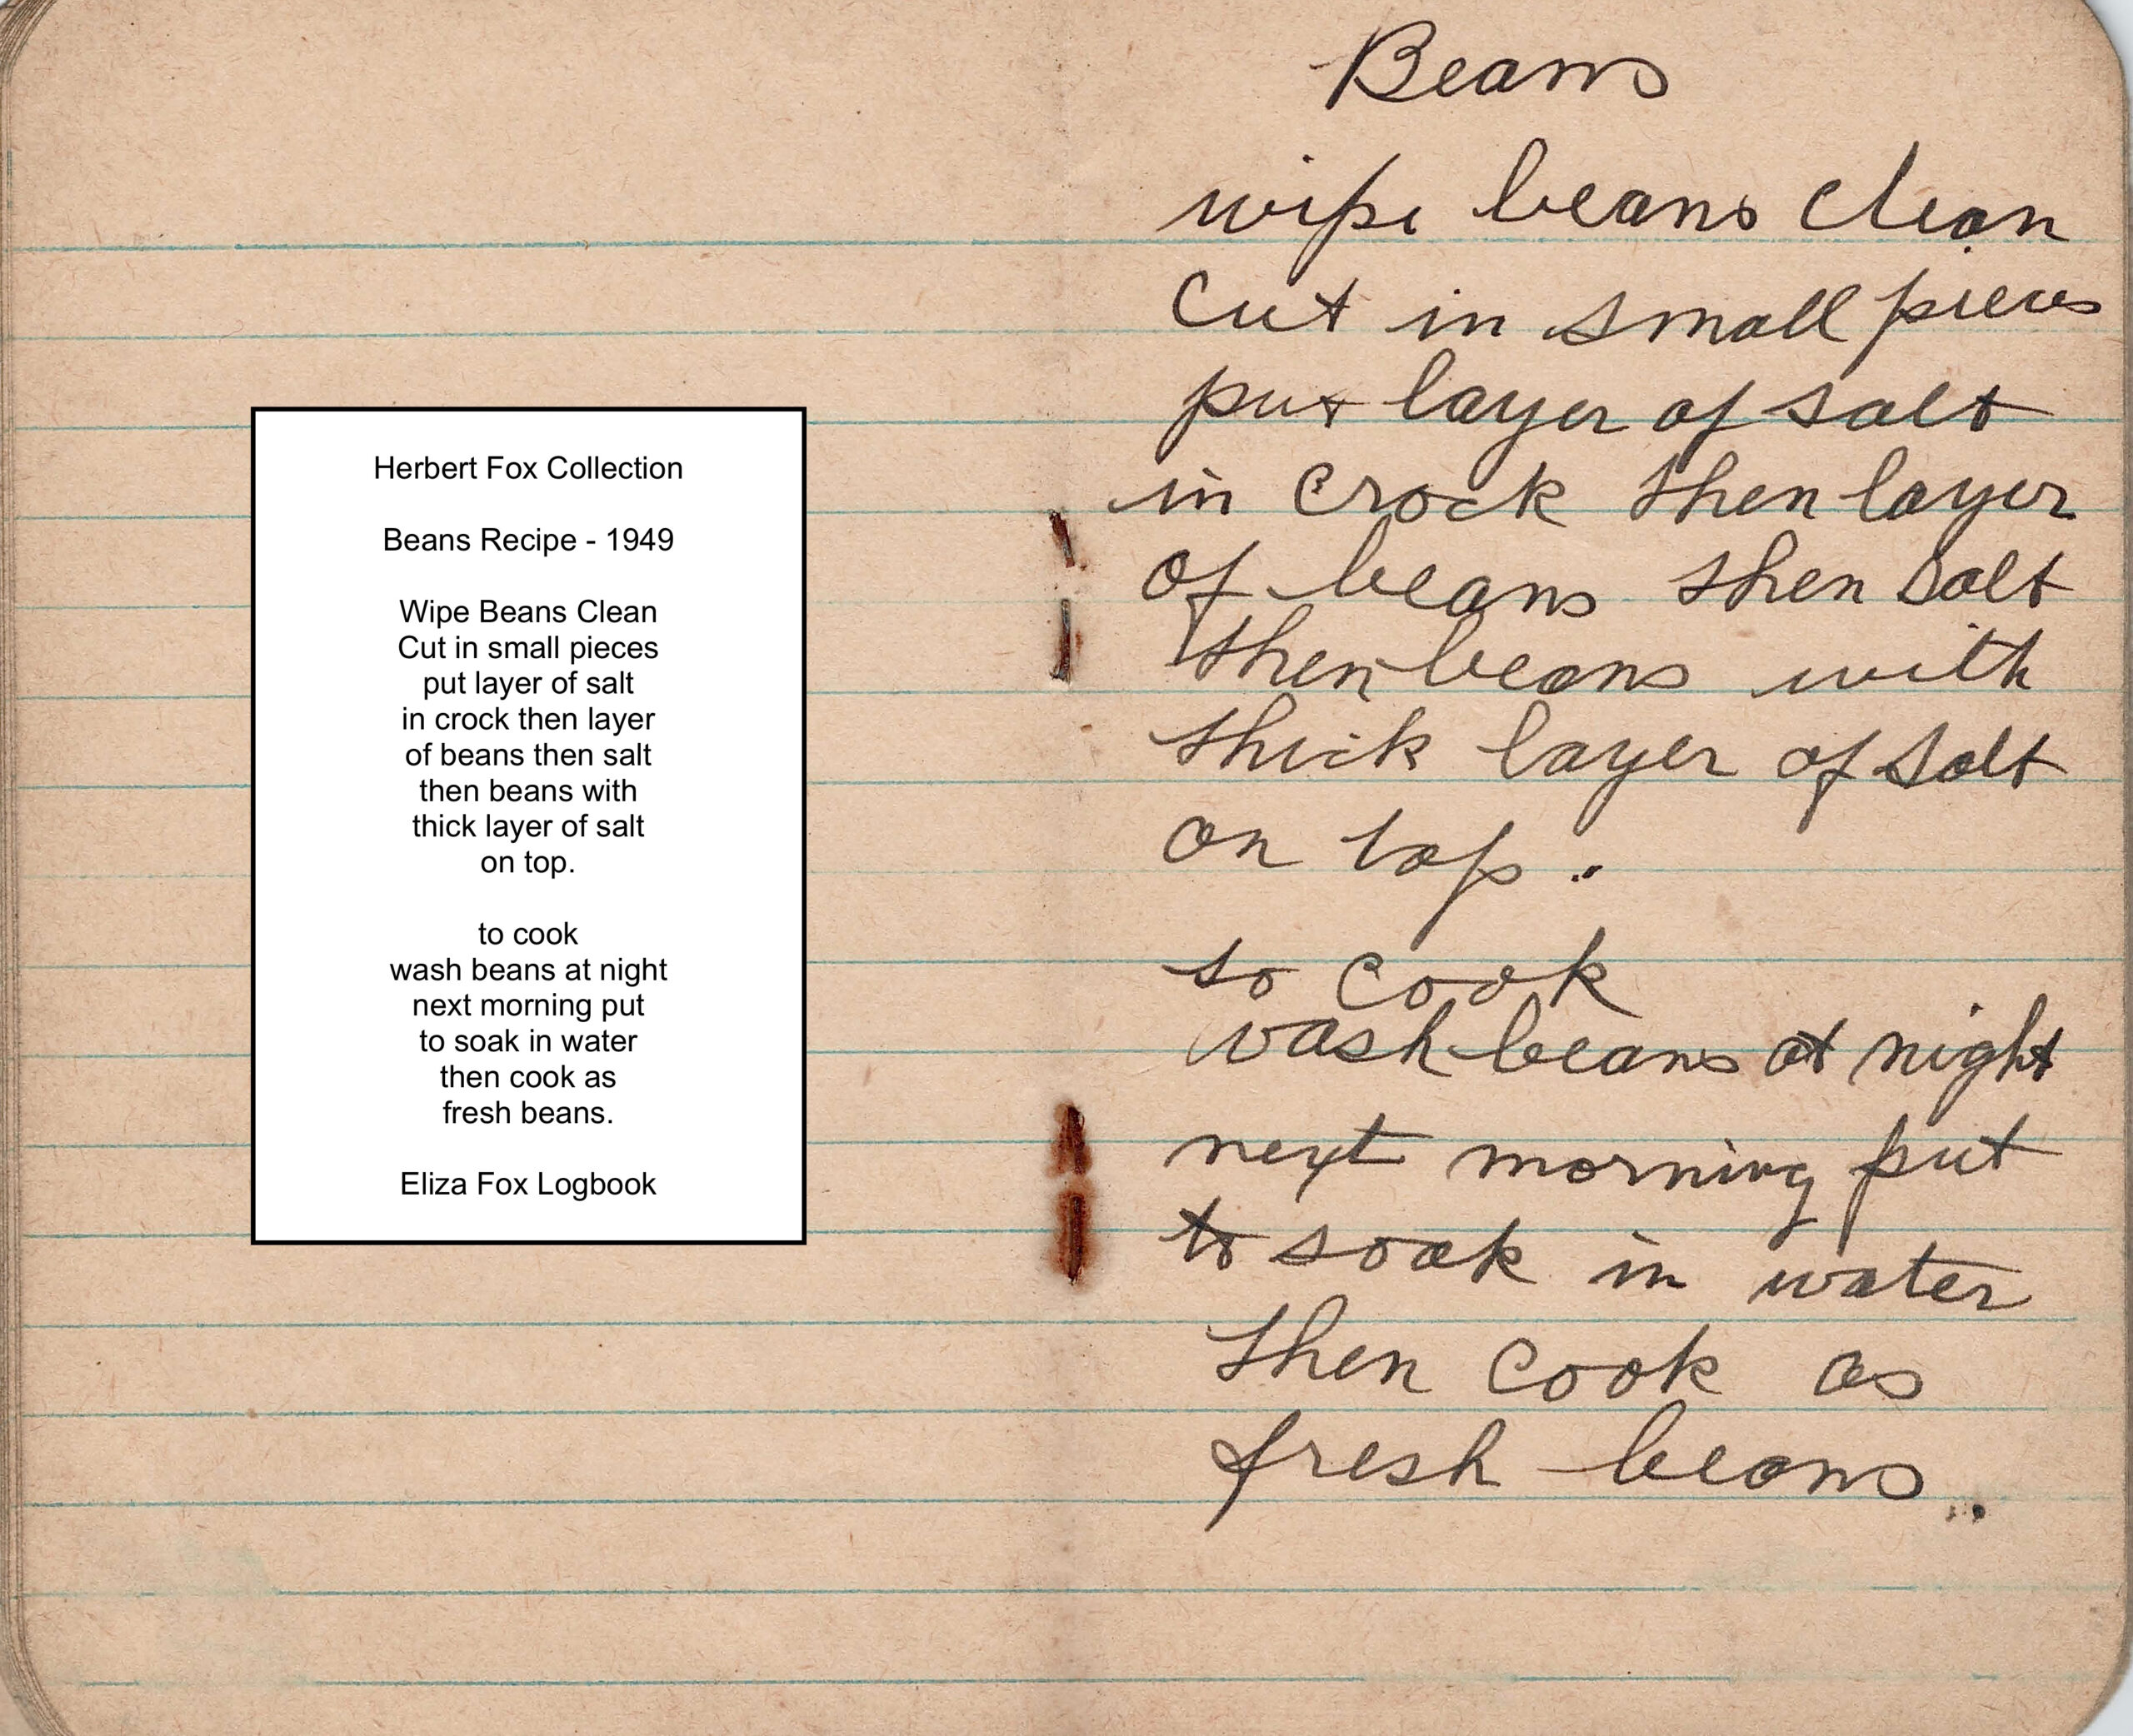 Herbert Fox Collection
Beans Recipe - 1949
Wipe Beans Clean
Cut in small pieces
put layer of salt
in crock then layer
of beans then salt
then beans with
thick layer of salt
on top.
to cook
wash beans at night
next morning put
to soak in water
then cook as
fresh beans.
Eliza Fox Logbook
Beans
wipe beans clean
Cut in small pieces
put layer of salt
in crock then layer
of beans then salt
then beans with
thick layer of salt
on top.
to cook
wash beans at night
next morning put
to soak in water
then cook as
fresh beans.